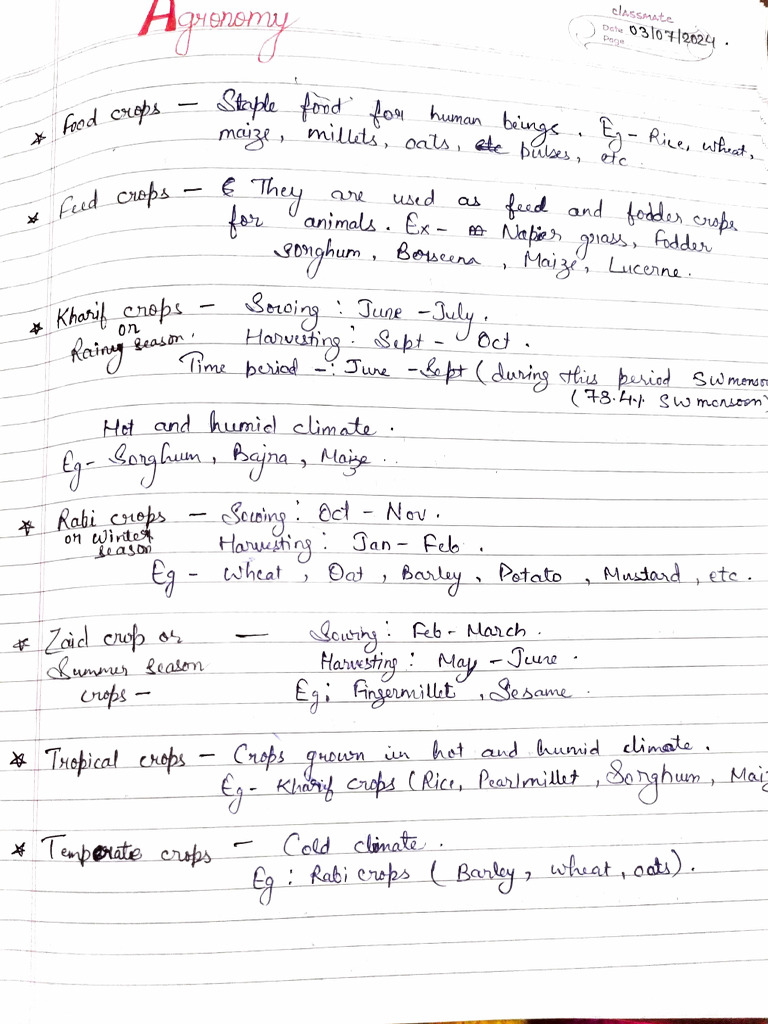 Agronomy
classmate
Date 03/07/2024.
Page
* Food crops - Staple food for human beings. Eg - Rice, wheat,
maize, millets, oats, pulses, etc.
* Feed crops - They are used as feed and fodder crops
for animals. Ex - Napier grass, Fodder
Sorghum, Berseena, Maize, Lucerne.
* Kharif crops - Sowing : June - July.
or
Rainy season. Harvesting : Sept - Oct.
Time period -: June - Sept (during this period SW monsoo
(78.4% SW monsoon)
Hot and humid climate.
Eg - Sorghum, Bajra, Maize..
* Rabi crops - Sowing : Oct - Nov.
or winter
season Harvesting : Jan - Feb.
Eg - Wheat, Oat, Barley, Potato, Mustard, etc.
* Zaid crop or - Sowing : Feb - March.
Summer season Harvesting : May - June.
crops - Eg : Fingermillet, Sesame.
* Tropical crops - Crops grown in hot and humid climate.
Eg - Kharif crops (Rice, Pearlmillet, Sorghum, Maiz
* Temperate crops - Cold climate.
Eg : Rabi crops (Barley, wheat, oats).